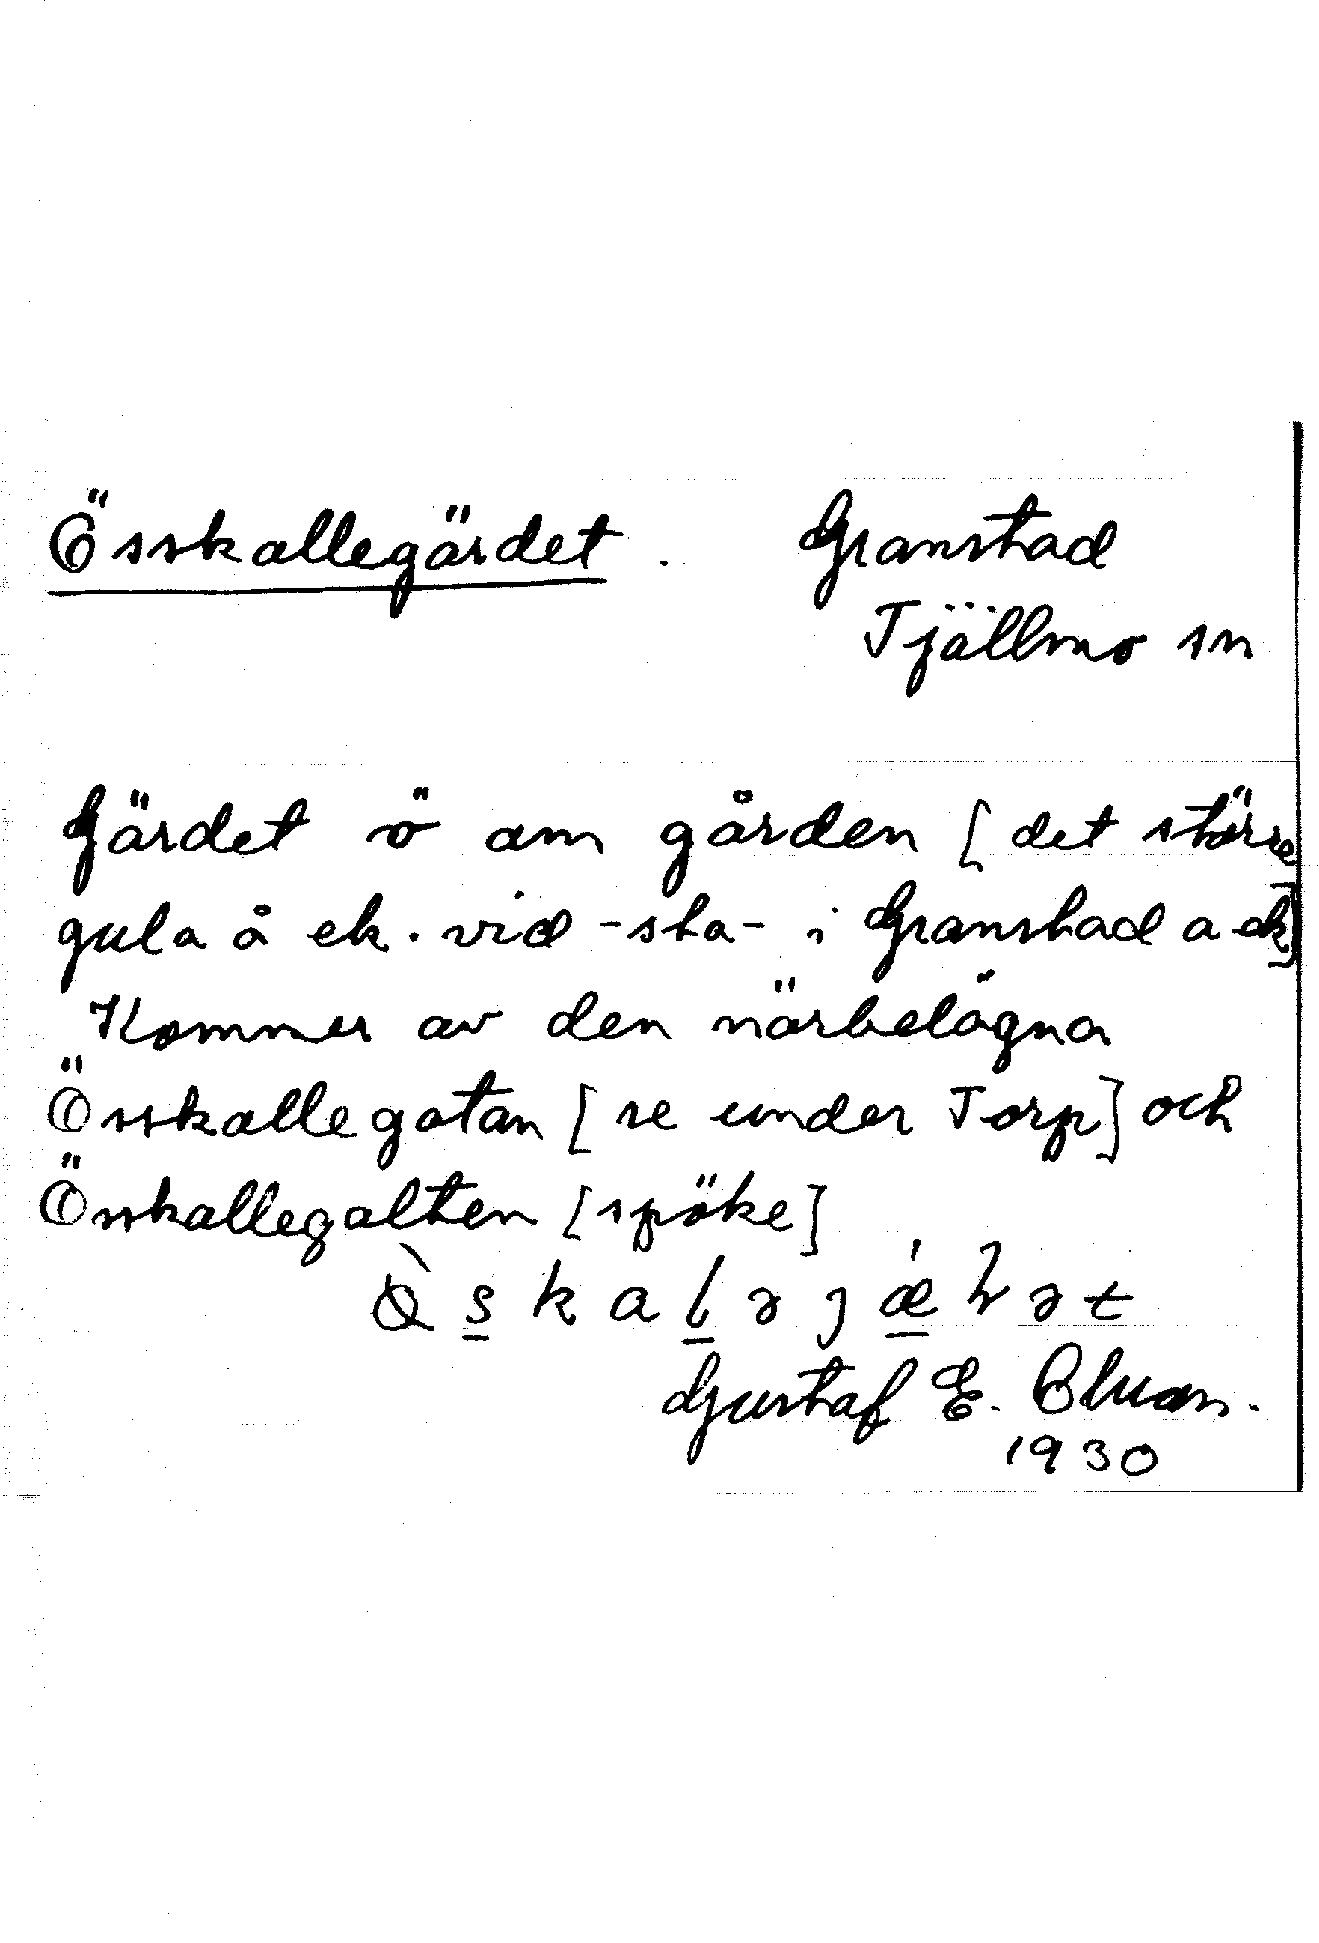 Össkallegärdet. Granstad
Tjällmo sn
Gärdet ö om gården [det större
gula å ek. vid -sta- i Granstad a ek]
Kommer av den närbelägna
Össkallegatan [se under Torp] och
Össkallegalten [spöke]
Gustaf E. Bluom.
1930